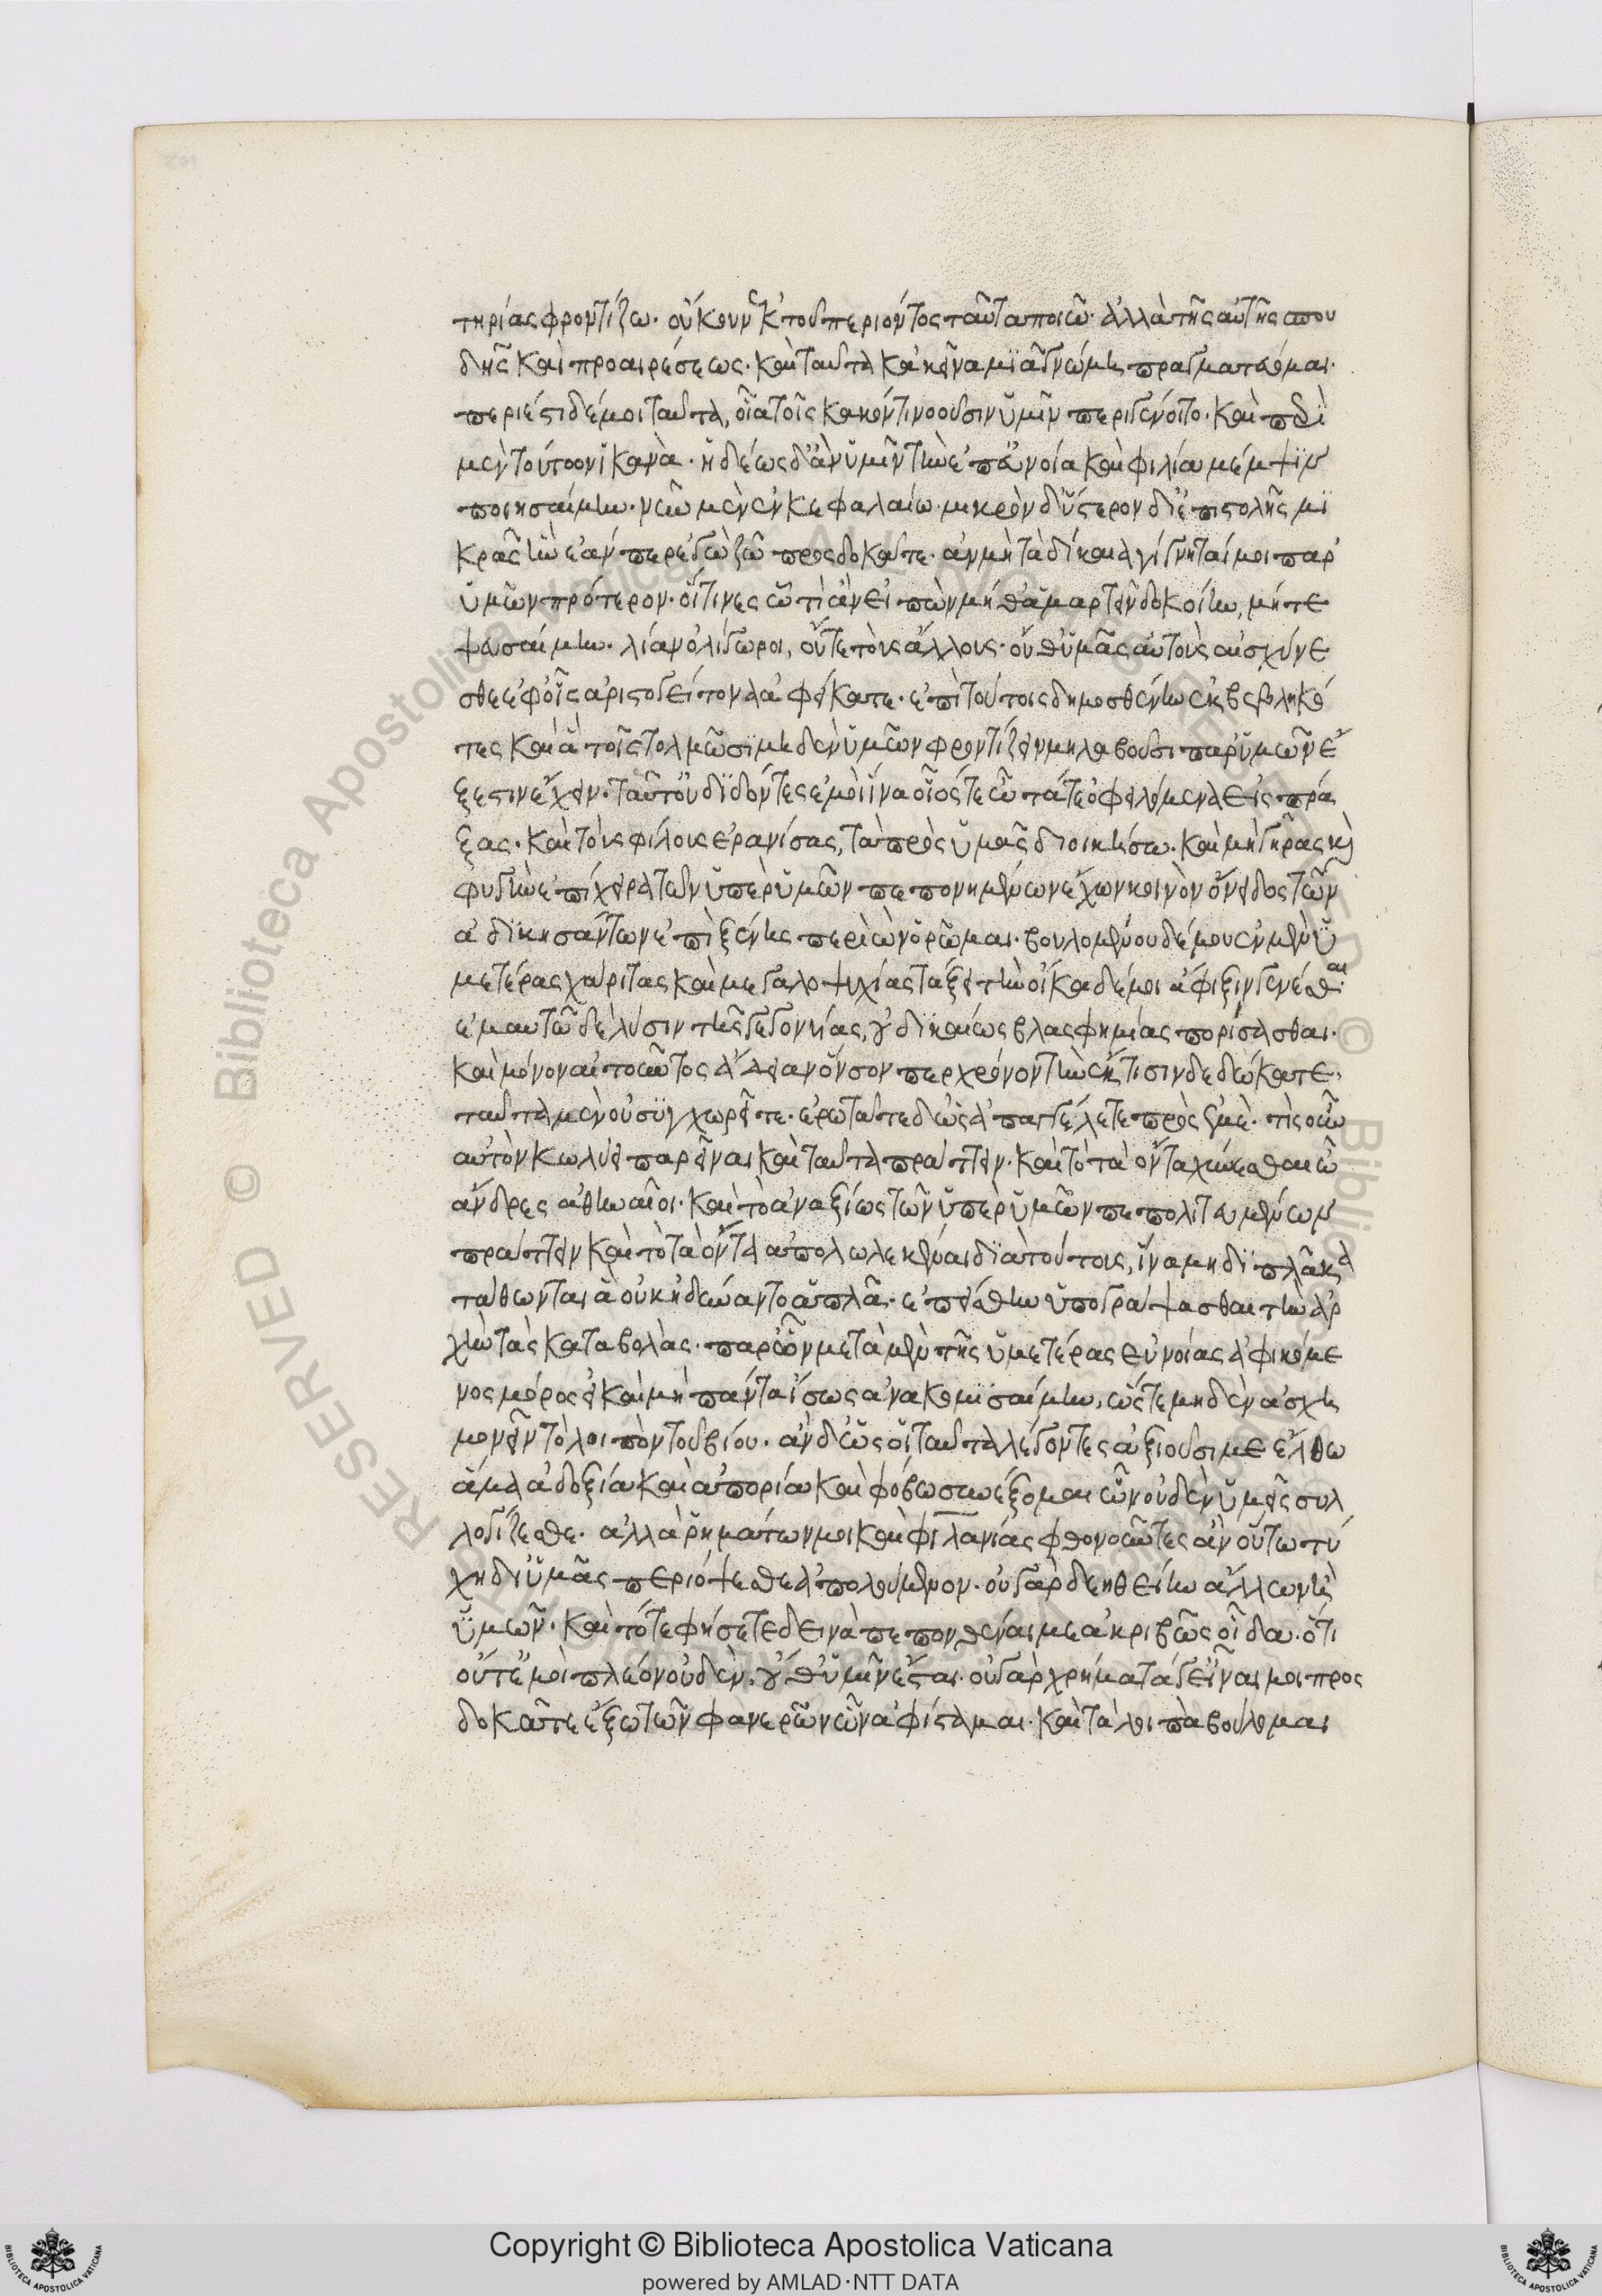 τηρίας φροντίζω. οὔκουν ἐκ τοῦ περιόντος ταῦτα ποιῶ· ἀλλὰ τῆς αὐτῆς σπου
δῆς καὶ προαιρέσεως· καὶ ταῦτα κἀκεῖνα μϊᾶ γνώμη πραγματεύομαι·
περιέστι δέ μοι ταῦτα, οἷα τοῖς κακόν τι νοοῦσιν ὑμῖν περιγένοιτο· καὶ περὶ
μὲν τούτοον ἱκανὰ· ἡδέως δ' ἂν ὑμῖν τὴν ἐπ' εὐνοία καὶ φιλία μέμψϊν
ποιησαίμην· νῦν μὲν ἐν κεφαλαίω· μικρὸν δ' ὕστερον δι' ἐπιστολῆς μϊ
κρᾶς ἣν ἐάν περ ἐγὼ ζῶ προσδοκᾶτε· ἂν μὴ τὰ δίκαια γίγνηταί μοι παρ'
ὑμῶν πρότερον· οἵτινες ὦ τὶ ἂν εἰπὼν μήθ' ἁμαρτεῖν δοκοίην, μήτε
ψευσαίμην· λίαν ὀλίγωροι, οὔτε τοὺς ἄλλους· οὔθ' ὑμᾶς αὐτοὺς αἰσχύνε
σθε ἐφ' οἷς ἀριστογείτονα ἀφείκατε· ἐπὶ τούτοις δημοσθένην ἐκβεβληκό
τες καὶ ἃ τοῖς τολμῶσϊ μηδὲν ὑμῶν φροντίζειν μὴ λαβοῦσι παρ' ὑμῶν ἔ
ξεστιν ἔχειν· ταῦτ' οὐ δϊδόντες ἐμοὶ ἵνα οἷός τε ὦ τά τε ὀφειλόμενα εἰσπρά
ξας· καὶ τοὺς φίλους ἐρανίσας, τὰ πρὸς ὑμᾶς διοικήσω· καὶ μὴ γῆρας καὶ
φυγὴν ἐπίχειρα τῶν ὑπὲρ ὑμῶν πεπονημένων ἔχων κοινὸν ὄνειδος τῶν
ἀδϊκησάντων ἐπὶ ξένης περιὼν ὁρῶμαι· βουλομένου δέ μου ἐν μὲν ὑ
μετέρας χάριτας καὶ μεγαλοψυχίας τάξει τὴν οἴκαδέ μοι ἄφιξιν γενέσθαι·
ἐμαυτῶ δὲ λύσιν τῆς γεγονυίας, οὐ δικαίως βλασφημίας πορίσασθαι·
καὶ μόνον αἰτοῦντος ἄδειαν ὅνσον περ χρόνον τὴν ἔκτισιν δεδώκατε·
ταῦτα μὲν οὐ συγχωρεῖτε· ἐρωτᾶτε δ' ὡς ἀπαγγέλετε πρὸς ἐμὲ· τὶς οὖν
αὐτὸν κωλύει παρεῖναι καὶ ταῦτα πράττειν· καὶ τὸ τὰ ὄντα χύνεσθαι ὦ
ἄνδρες ἀθηναῖοι· καὶ τὸ ἀναξίως τῶν ὑπὲρ ὑμῶν πεπολιτευμένων
πράττειν καὶ τὸ τὰ ὄντα ἀπολωλεκέναι δϊὰ τούτοις, ἵνα μὴ δϊπλᾶ κα
τάθωνται ἃ οὐκ ἠδύναντο ἁπλᾶ· ἐπείσθην ὑπογράψασθαι τὴν ἀρ
χὴν τὰς καταβολὰς· παρ' ὧν μετὰ μὲν τῆς ὑμετέρας εὐνοίας ἀφικόμε
νος μέρος εἰ καὶ μὴ πάντα ἴσως ἀνακομϊσαίμην, ὥστε μηδὲν ἀσχη
μονεῖν τὸ λοιπὸν τοῦ βίου· ἂν δ' ὡς οἱ ταῦτα λέγοντες ἀξιοῦσι με ἔλθω
ἅμα ἀδοξία καὶ ἀπορία καὶ φόβω συνέξομαι ὧν οὐδὲν ὑμεῖς συλ
λογίζεσθε· ἀλλὰ ῥημάτων μοι καὶ φιλανίας φθονοῦντες ἂν οὕτω τύ
χη δι' ὑμᾶς περιόψεσθε ἀπολούμενον· οὐ γὰρ δεηθείην ἄλλων ἢ
ὑμῶν· καὶ τότε φήσετε δεινὰ πεπονθέναι με ἀκριβῶς οἶδα· ὅτι
οὔτ' ἐμοὶ πλέον οὐδὲν, οὔθ' ὑμῖν ἔσται· οὐ γὰρ χρήματά γε εἶναι μοι προς
δοκᾶτε ἔξω τῶν φανερῶν ὧν ἀφίσταμαι· καὶ τὰ λοιπὰ βούλομαι
Copyright © Biblioteca Apostolica Vaticana
powered by AMLAD·NTT DATA